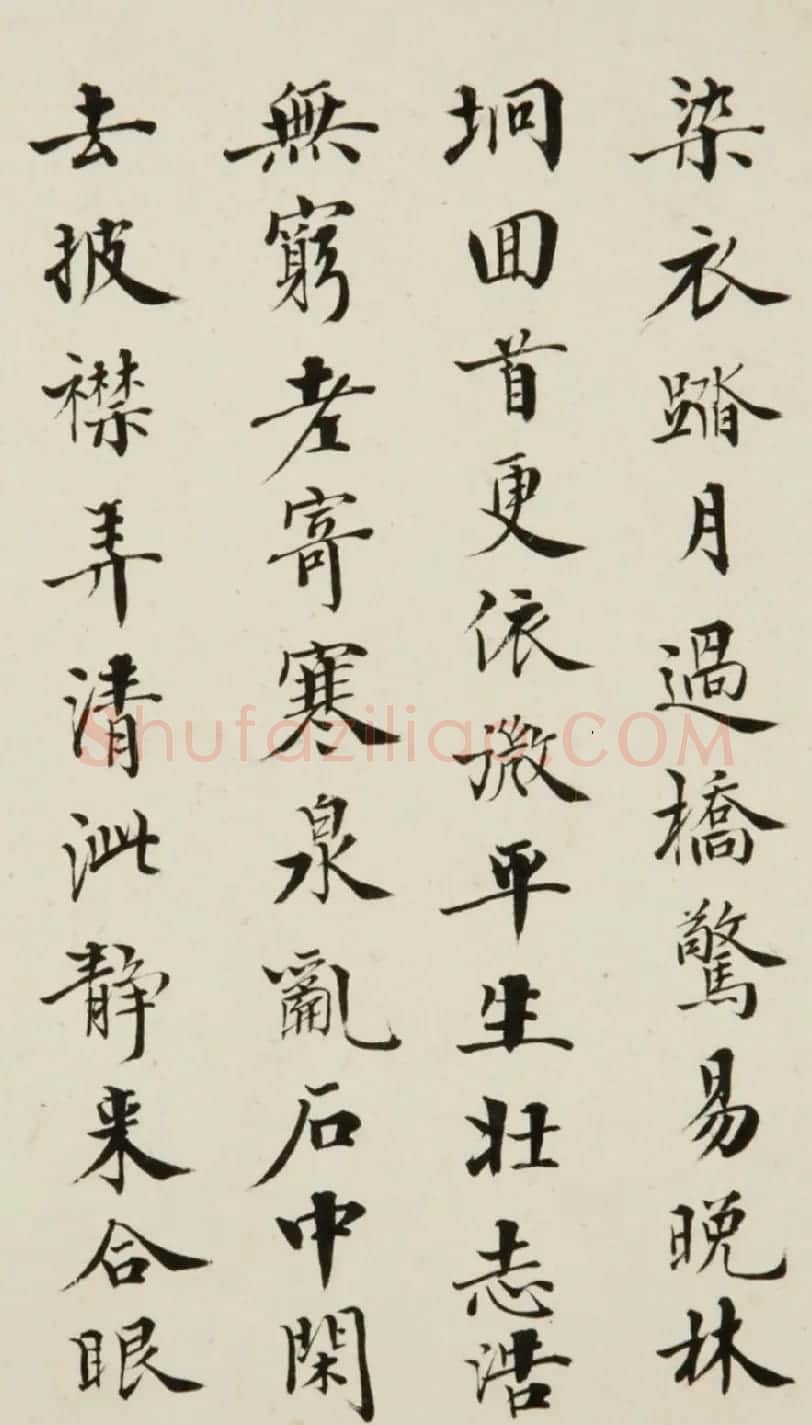 染衣踏月過橋驚易晚林
坰回首更依微平生壯志浩
無窮老寄寒泉亂石中閑
去披襟弄清泚静来合眼
Shufaziliao.COM